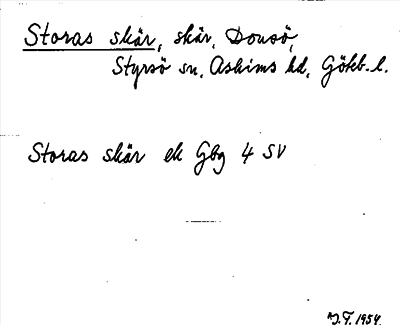 Storas skär, skär, Donsö,
Styrsö sn, Askims hd, Göteb. l.
Storas skär ek Gbg 4 SV
1954